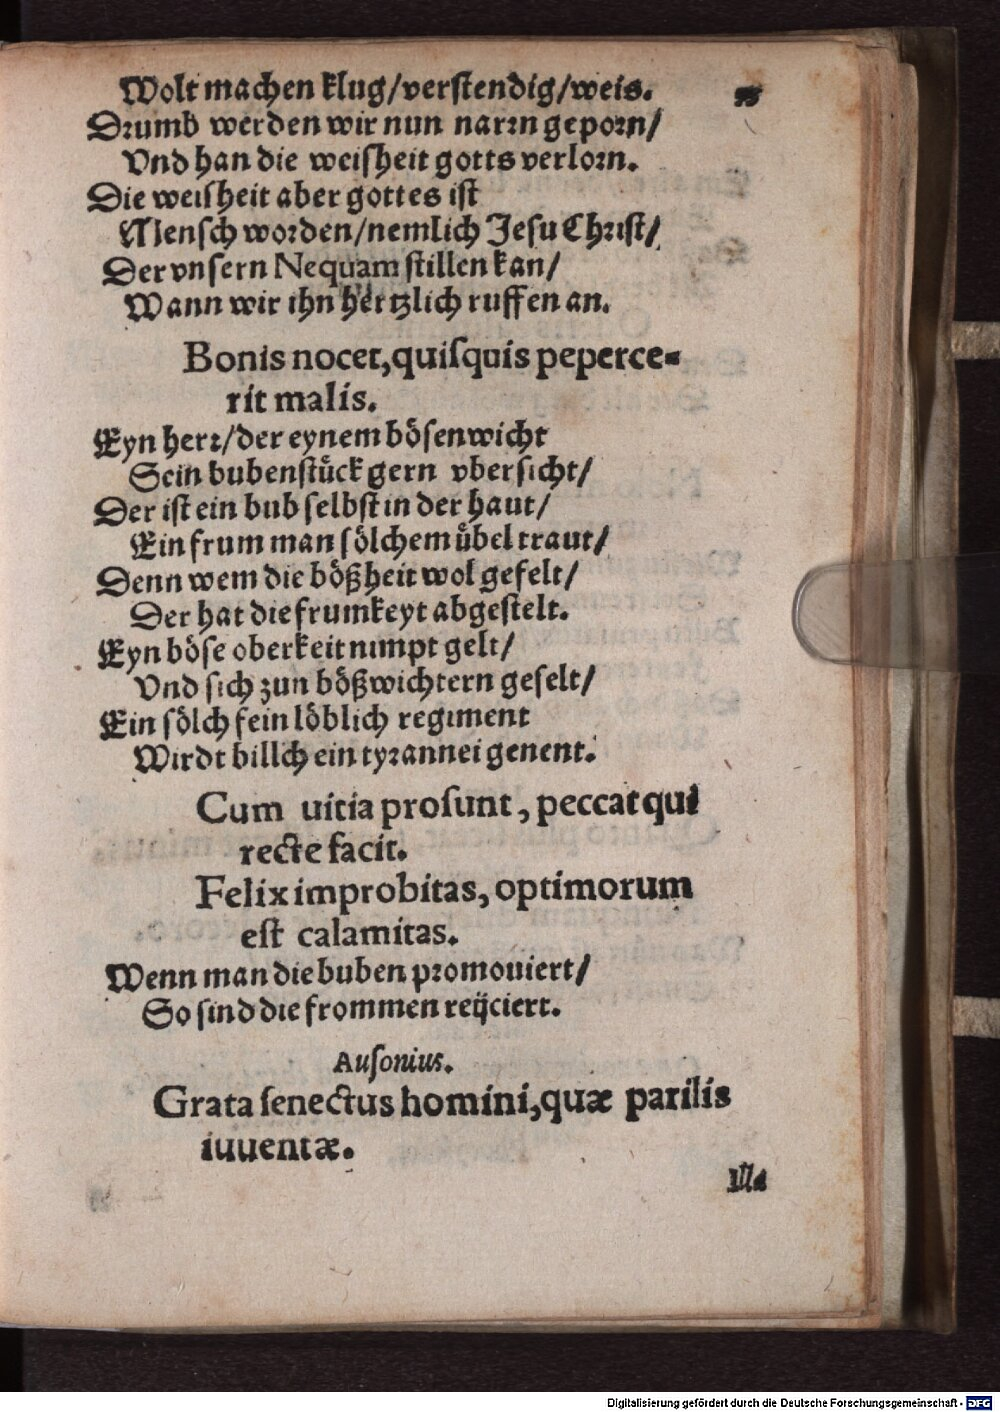 Wolt machen klug/verstendig/weis.
Drumb werden wir nun narrn geporn/
Vnd han die weisheit gotts verlorn.
Die weisheit aber gottes ist
Mensch worden/nemlich Jesu Christ/
Der vnsern Nequam stillen kan/
Wann wir ihn hertzlich ruffen an.
Bonis nocet, quiſquis peperce-
rit malis.
Eyn herr/der eynem bösenwicht
Sein bubenstück gern vbersicht/
Der ist ein bub selbst in der haut/
Ein frum man sölchem übel traut/
Denn wem die bößheit wol gefelt/
Der hat die frumkeyt abgestelt.
Eyn böse oberkeit nimpt gelt/
Vnd sich zun bößwichtern geselt/
Ein sölch fein löblich regiment
Wirdt billch ein tyrannei genent.
Cum uitia proſunt, peccat qui
recte facit.
Felix improbitas, optimorum
eſt calamitas.
Wenn man die buben promouiert/
So sind die frommen reijciert.
Auſonius.
Grata ſenectus homini, quæ parilis
iuuentæ.
Illa
Digitalisierung gefördert durch die Deutsche Forschungsgemeinschaft - DFG